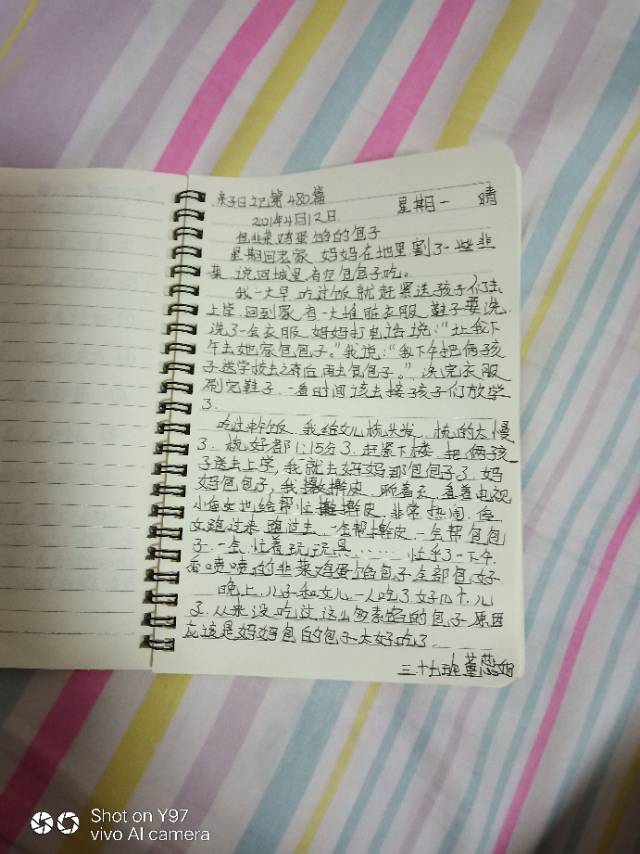 亲子日记第480篇 星期一 晴
2021年4月12日
包韭菜鸡蛋馅的包子
星期回老家 妈妈在地里割了一些韭
菜 说回城里有空包包子吃。
我一大早 吃过饭 就赶紧送孩子们去
上学. 回到家 有一大堆脏衣服 鞋子要洗.
洗了一会衣服. 妈妈打电话说:“让我下
午去她家包包子。”我说:“我下午把俩孩
子送学校去之后 再去包包子。” 洗完衣服
刷完鞋子. 一看时间 该去接孩子们放学
了.
吃过午饭. 我给女儿梳头发. 梳的太慢
了. 梳好都1:15分了. 赶紧下楼. 把俩孩
子送去上学, 我就去妈妈那包包子了. 妈
妈包包子, 我擀皮. 聊着天. 看着电视
小侄女也给帮忙擀皮. 非常热闹. 侄
女跑过来 跑过去 一会帮擀皮 一会帮包包
子. 一会 忙着玩玩具…… 忙乎了一下午.
香喷喷的韭菜鸡蛋馅包子全部包好
晚上. 儿子和女儿. 一人吃了好几个. 儿
子. 从来没吃过 这么多 的包子. 原因
应该是妈妈包的包子太好吃了.
三十九班